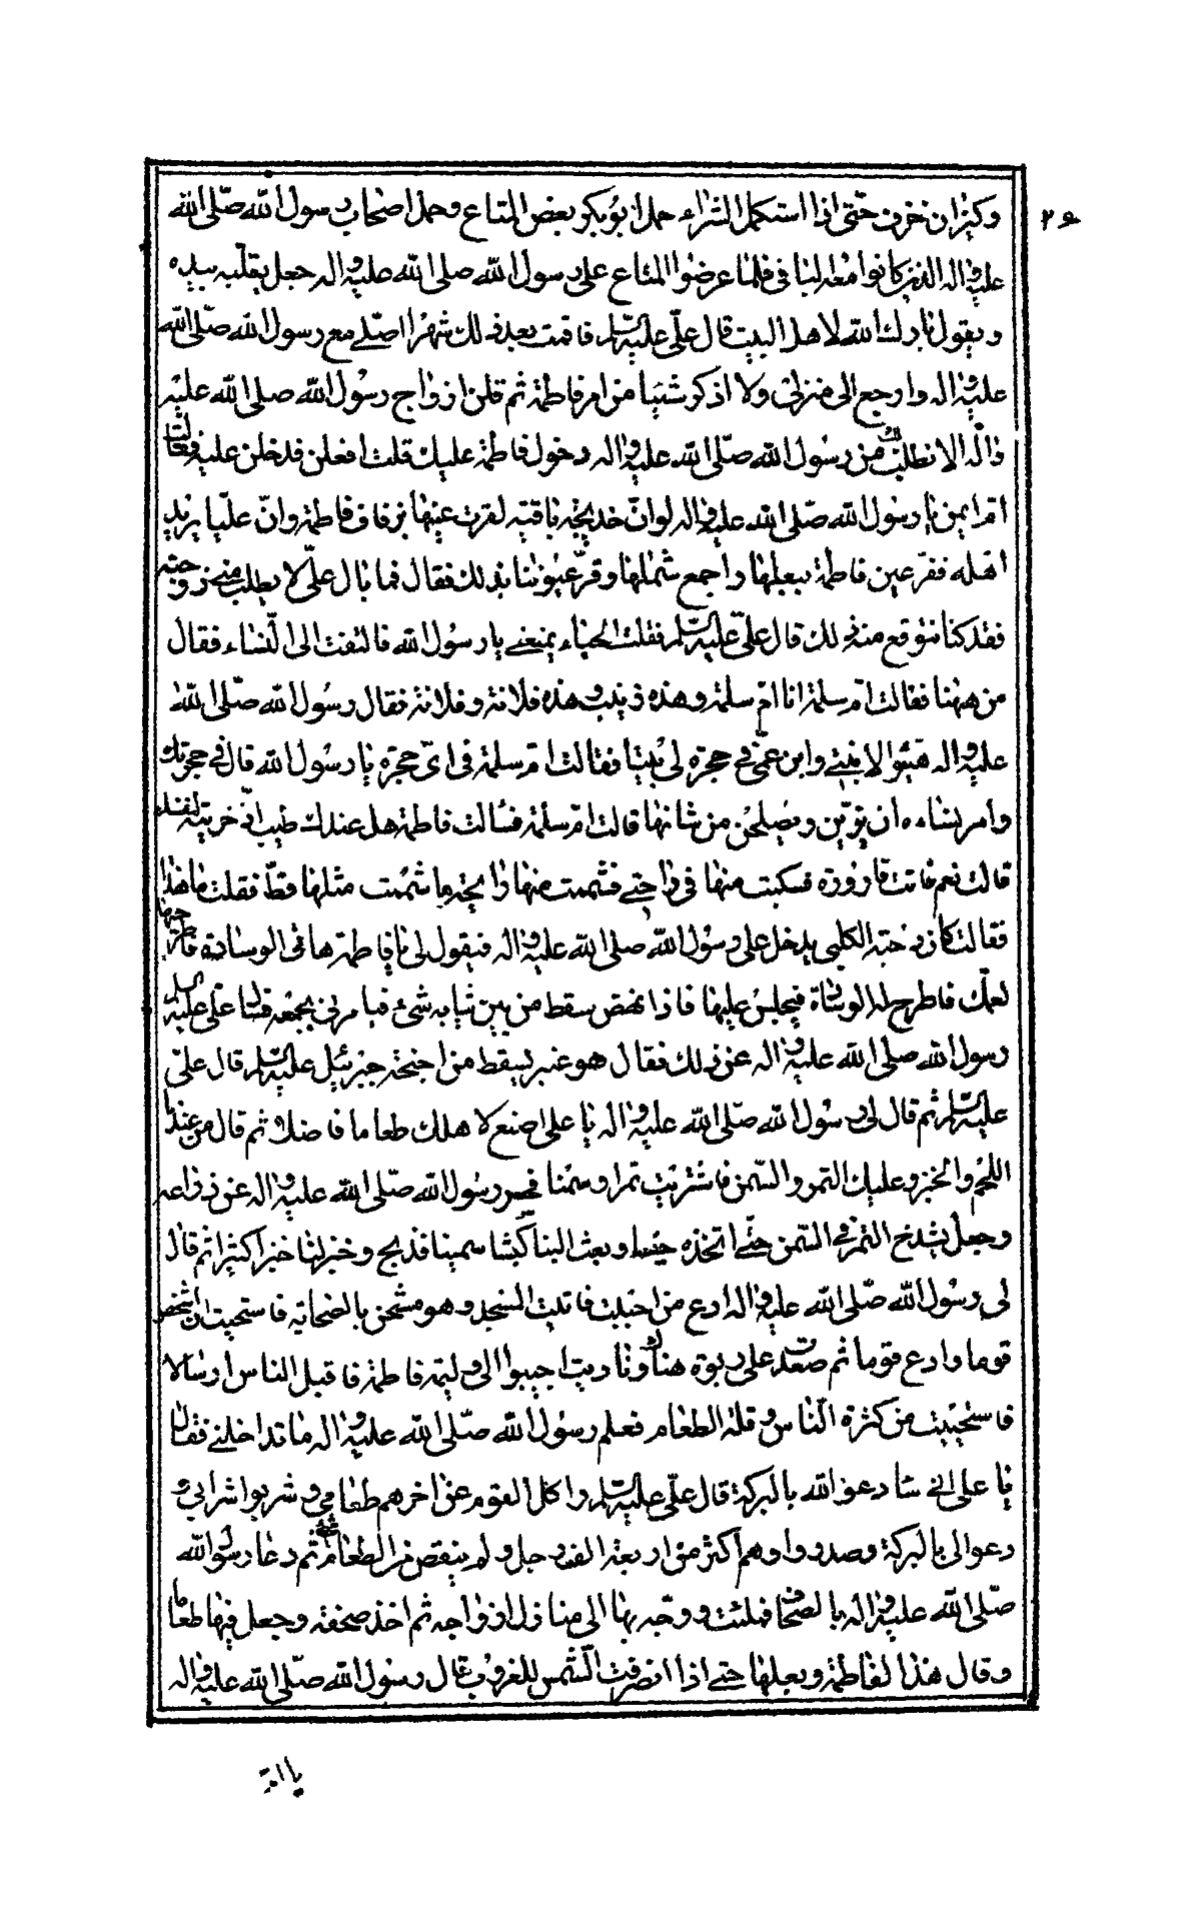 وكيزان خزف حتى اذا استكمل الشراء حمل ابوبكر بعض المتاع وحمل اصحاب رسول الله صلّى الله
عليه واله الذين كانوا معه الباقى فلما عرضوا المتاع على رسول الله صلى الله عليه واله جعل يقلبه بيده
ويقول بارك الله لاهل البيت قال علىّ عليه السّلم فاقمت بعد ذلك شهرا اصلّى مع رسول الله صلّى الله
عليه واله وارجع الى منزلى ولا اذكر شيئا من امر فاطمة ثم قلن ازواج رسول الله صلى الله عليه
واله الا نطلب لك من رسول الله صلّى الله عليه واله دخول فاطمة عليك قلت افعلن فدخلن عليه فقالت
امّ ايمن يا رسول الله صلّى الله عليه واله لو انّ خديجة باقية لقرت عينها بزفاف فاطمة وانّ عليّا يريد
اهله فقر عين فاطمة ببعلها واجمع شملها وقرّ عيوننا بذلك فقال فما بال علىّ لا يطلب منى زوجته
فقد كنا نتوقع منه ذلك قال علىّ عليه السّلم فقلت الحياء يمنعنى يا رسول الله فالتفت الى النّساء فقال
من ههنا فقالت امّ سلمة انا امّ سلمة وهذه زينب وهذه فلانة وفلانة فقال رسول الله صلّى الله
عليه واله هيّئوا لابنتى وابن عمّى فى حجرة لى بيتا فقالت امّ سلمة فى اىّ حجرة يا رسول الله قال فى حجرتك
وامر نساءه ان يزيّن ويصلحن من شانها قالت امّ سلمة فسالت فاطمة هل عندك طيب ادّخرتيه لنفسك
قالت نعم فاتت قارورة فسكبت منها فى راحتى فشممت منها رائحة ما شممت مثلها قطّ فقلت ما هذا
فقالت كان دحية الكلبى يدخل على رسول الله صلى الله عليه واله فيقول لى يا فاطمة هاتى الوسادة فاطرحيها
لعمّك فاطرح له الوسادة فيجلس عليها فاذا نهض سقط من بين ثيابه شئ فيامرنى بجمعه فسال علىّ عليه السلم
رسول الله صلى الله عليه واله عن ذلك فقال هو عنبر يسقط من اجنحة جبرئيل عليه السّلم قال علىّ
عليه السّلم ثم قال لى رسول الله صلّى الله عليه واله يا على اصنع لاهلك طعاما فاضلا ثم قال من عندنا
اللحم والخبز وعليك التمر والسّمن فاشتريت تمرا وسمنا فحسر رسول الله صلّى الله عليه واله عن ذراعه
وجعل يشدخ التمر فى السّمن حتّى اتخذه حيسا وبعث الينا كبشا سمينا فذبح وخبز لنا خبز اكثيرا ثم قال
لى رسول الله صلّى الله عليه واله ادع من احببت فاتيت المسجد وهو مشحن بالصحابة فاستحيت ان اشخص
قوما وادع قوما ثم صعدت على ربوة هناك وناديت اجيبوا الى وليمة فاطمة فاقبل الناس ارسالا
فاستحييت من كثرة النّاس وقلة الطعام فعلم رسول الله صلّى الله عليه واله ما تداخلنى فقال
يا على انى سادعو الله بالبركة قال علىّ عليه السّلم واكل القوم عن اخرهم طعامى وشربوا شرابى و
دعوا لى بالبركة وصدروا وهم اكثر من اربعة الف رجل ولم ينقص من الطعام شئ ثم دعا رسول الله
صلّى الله عليه واله بالصحاف فملئت ووجّه بها الى منازل ازواجه ثم اخذ صحفة وجعل فيها طعاما
وقال هذا لفاطمة وبعلها حتى اذا انصرفت الشّمس للغروب قال رسول الله صلّى الله عليه واله